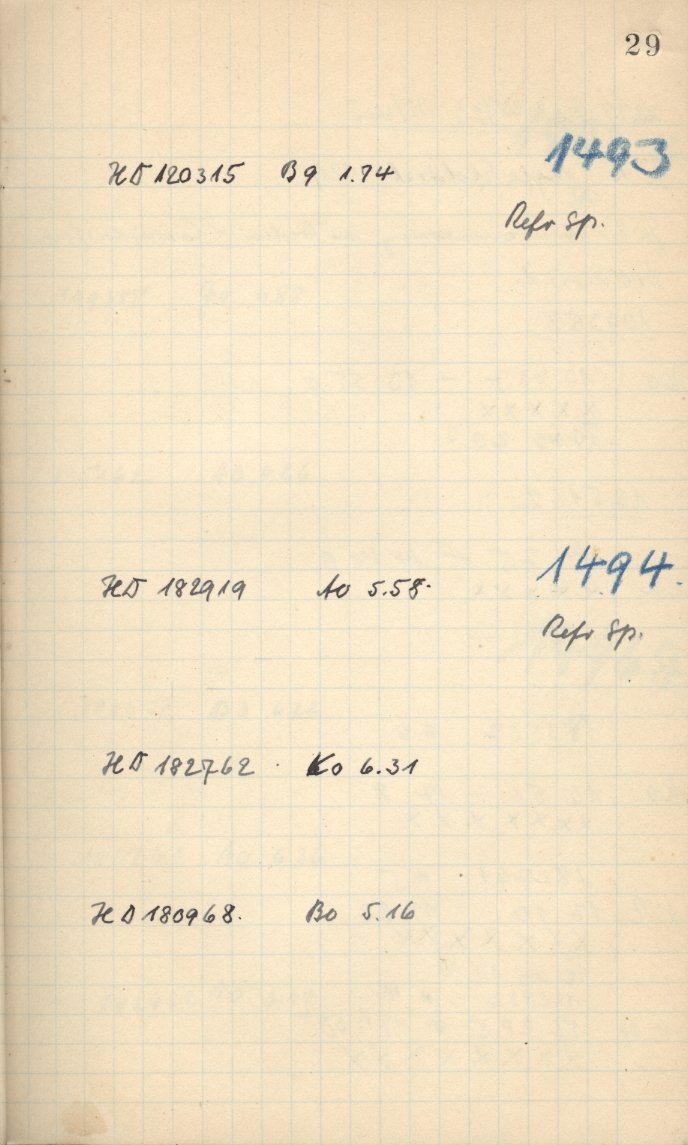 29
HD 120315 B9 1.74 1493
Refr Sp.
HD 182919 A0 5.58. 1494.
Refr Sp.
HD 182762 . K0 6.31
HD 180968. B0 5.16